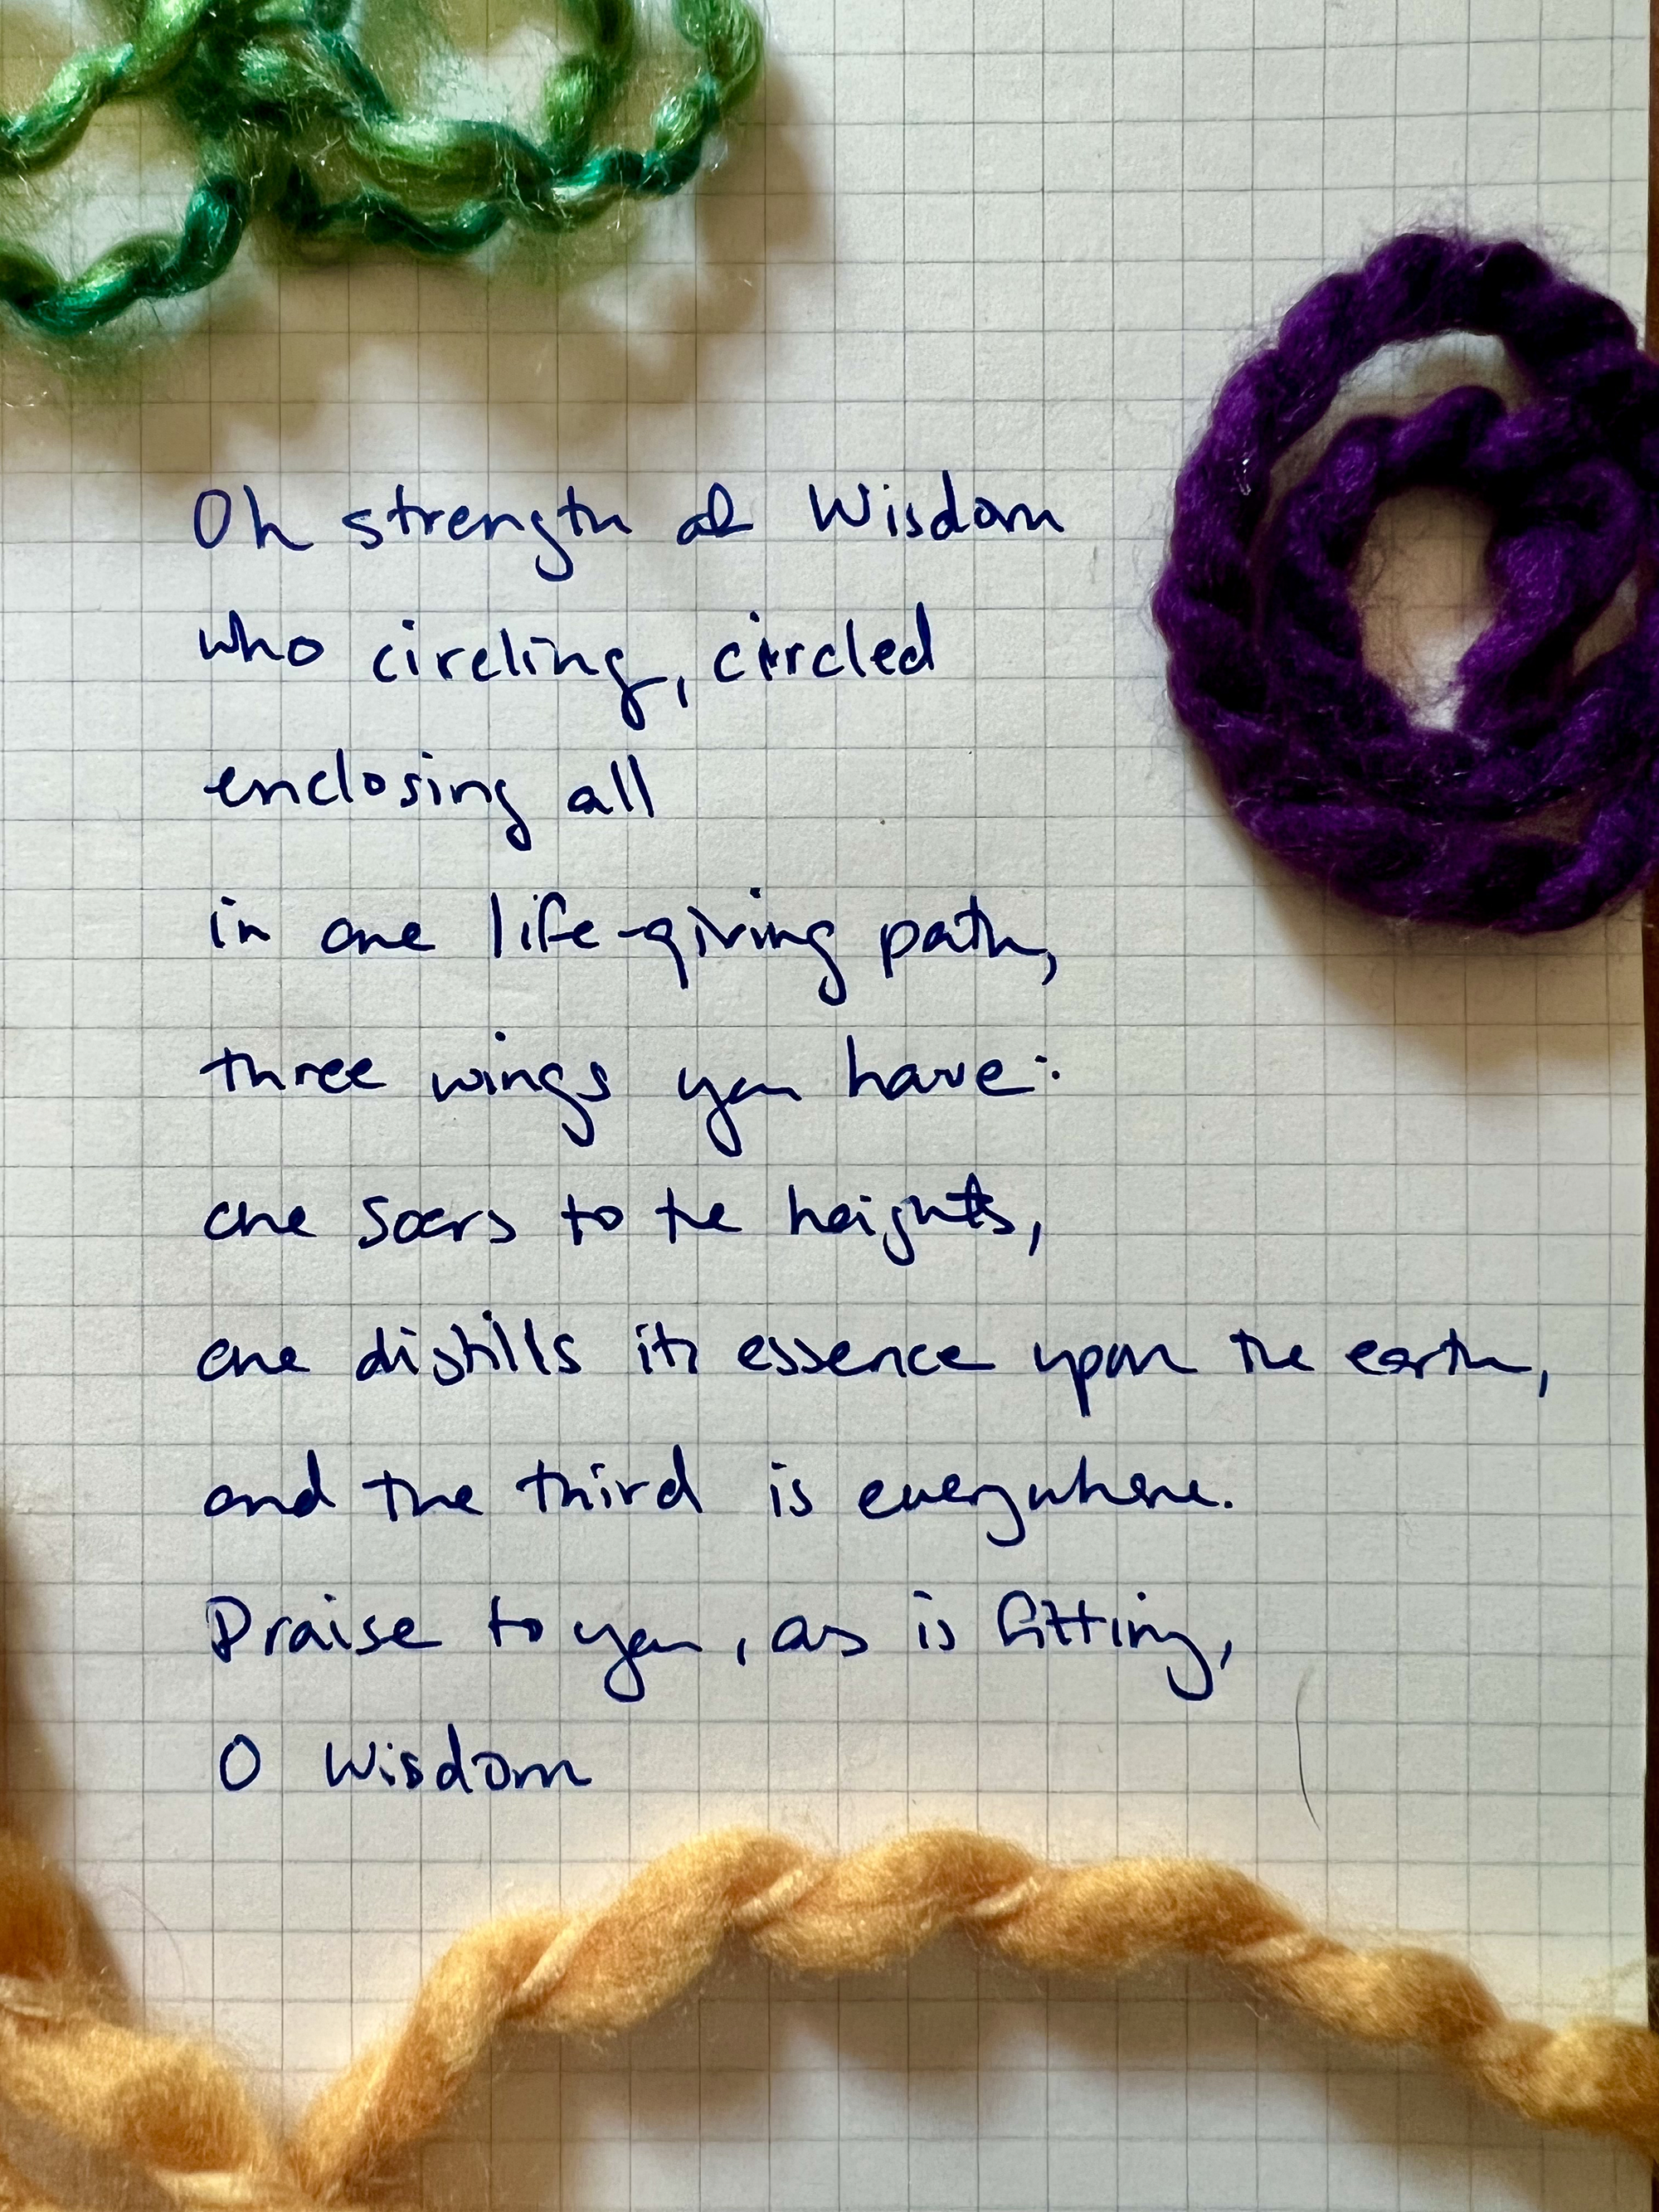 Oh strength of Wisdom
who circling, circled
enclosing all
in one life-giving path,
three wings you have:
one soars to the heights,
one distills its essence upon the earth,
and the third is everywhere.
Praise to you, as is fitting,
O Wisdom